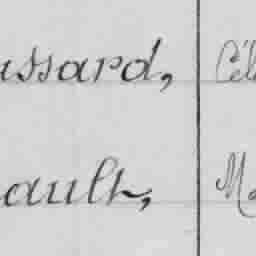 ussard, Cél
ault, Ma